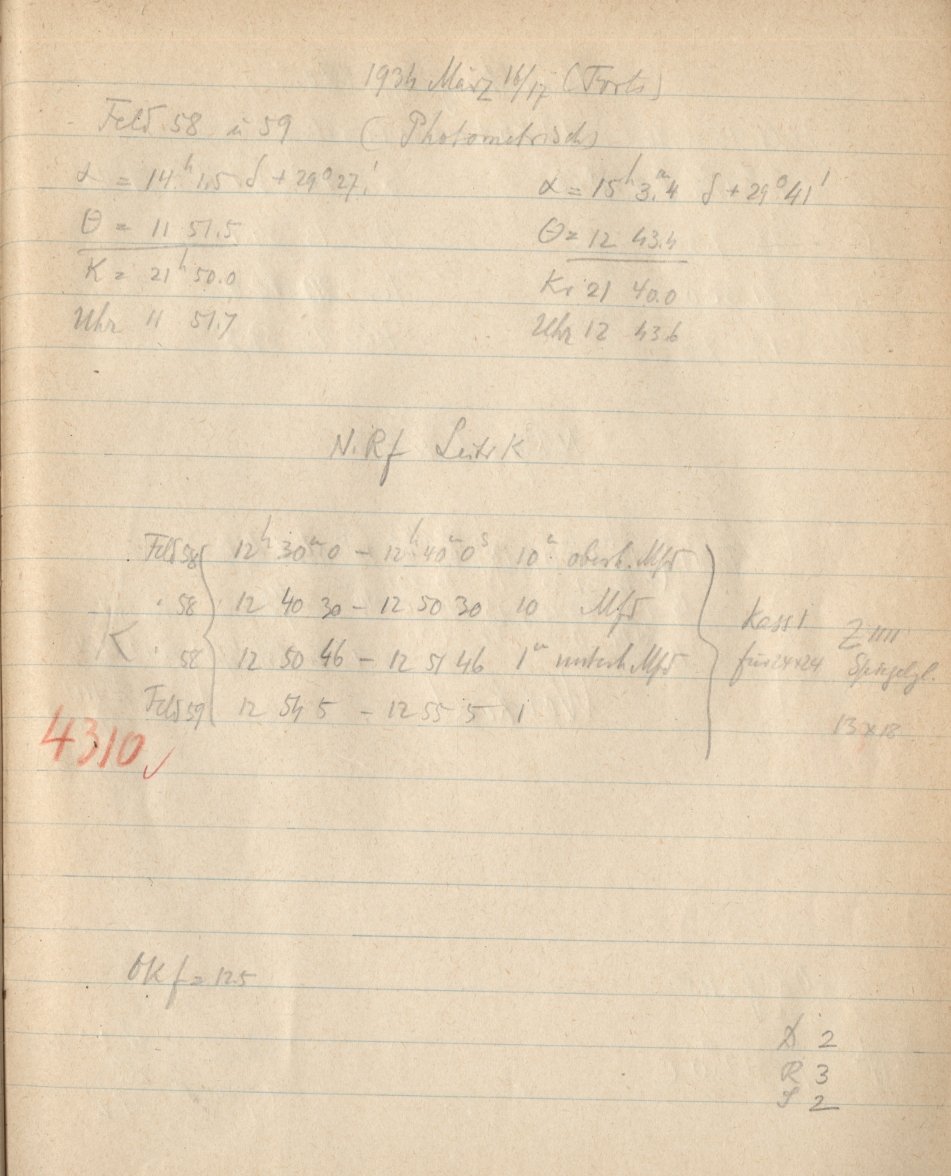 1934 März 16/17 (Forts)
Feld 58 u 59 (Photometrisch)
α = 14ʰ 1.5 δ + 29° 27' α = 15ʰ 3.ᵐ4 δ + 29° 41'
θ = 11 51.5 θ = 12 43.4
K = 21ʰ 50.0 K = 21 40.0
Uhr 11 51.7 Uhr 12 43.6
N.Rf Leitr K
Feld 58 12ʰ 30ᵐ 0 – 12ʰ 40ᵐ 0ˢ 10ᵐ oberh. Mfd
" 58 12 40 30 – 12 50 30 10 Mfd
K " 58 12 50 46 – 12 51 46 1ᵐ unterh Mfd
Feld 59 12 54 5 – 12 55 5 1
Kass I
für 24x24
Z IIII
Spiegelgl.
13 x 18
4310 ✓
OKf = 12.5
D 2
R 3
S 2